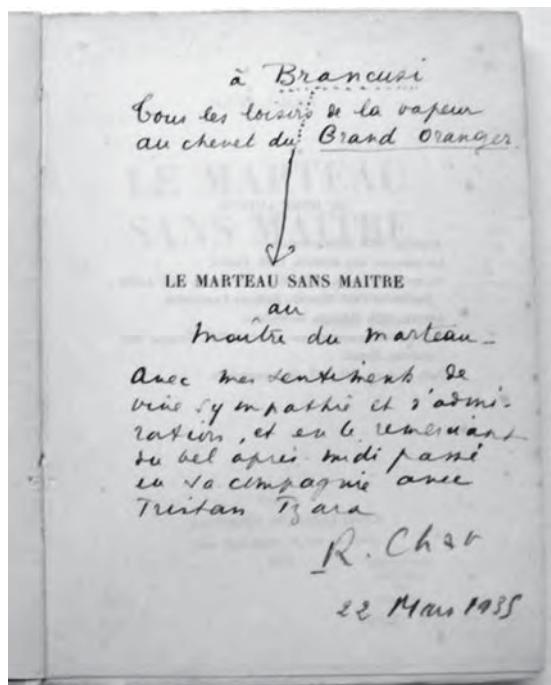 à Brancusi
Tous les loisirs de la vapeur
au chevet du Grand Oranger.
LE MARTEAU SANS MAITRE
au
maître du marteau_
avec mes sentiments de
vive sympathie et d'admi-
ration, et en le remerciant
du bel après-midi passé
en sa compagnie avec
Tristan Tzara
R. Char
22 Mars 1935